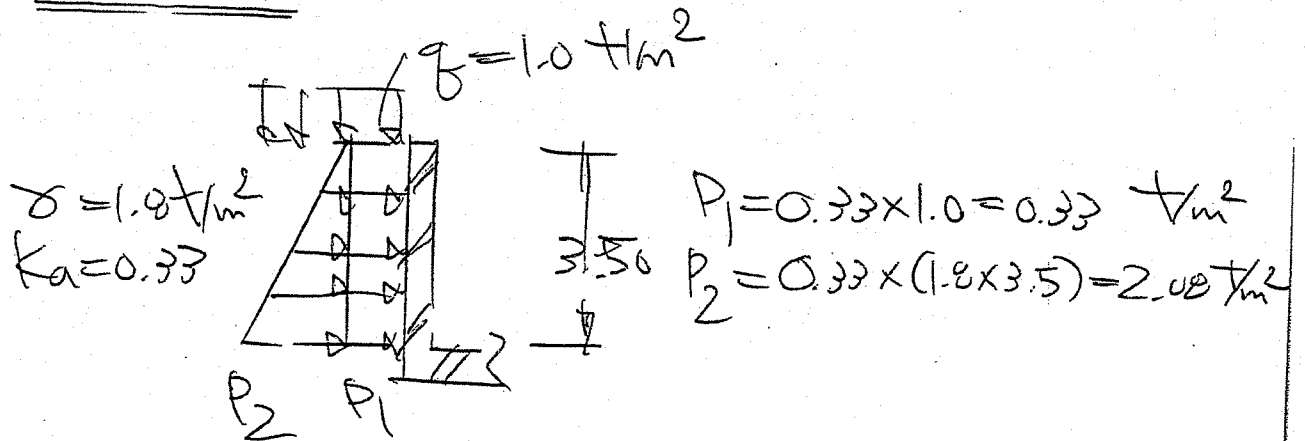 q=1.0 t/m²
γ=1.8 t/m²
Ka=0.33
3.50
P₁=0.33×1.0=0.33 t/m²
P₂=0.33×(1.8×3.5)=2.08 t/m²
P₂ P₁